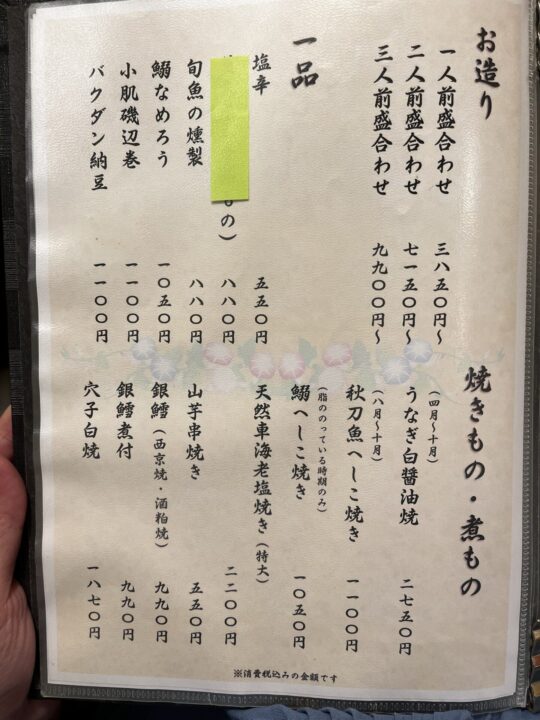 お造り
一人前盛合わせ 三八五〇円～
二人前盛合わせ 七一五〇円～
三人前盛合わせ 九九〇〇円～
一品
塩辛 五五〇円
の） 八八〇円
旬魚の燻製 八八〇円
鰯なめろう 一〇五〇円
小肌磯辺巻 一一〇〇円
バクダン納豆 一一〇〇円
焼きもの・煮もの
（四月～十月）
うなぎ白醤油焼 二七五〇円
（八月～十月）
秋刀魚へしこ焼き 一一〇〇円
（脂ののっている時期のみ）
鰯へしこ焼き 一〇五〇円
天然車海老塩焼き（特大） 二二〇〇円
山芋串焼き 五五〇円
銀鱈（西京焼・酒粕焼） 九九〇円
銀鱈煮付 九九〇円
穴子白焼 一八七〇円
※消費税込みの金額です